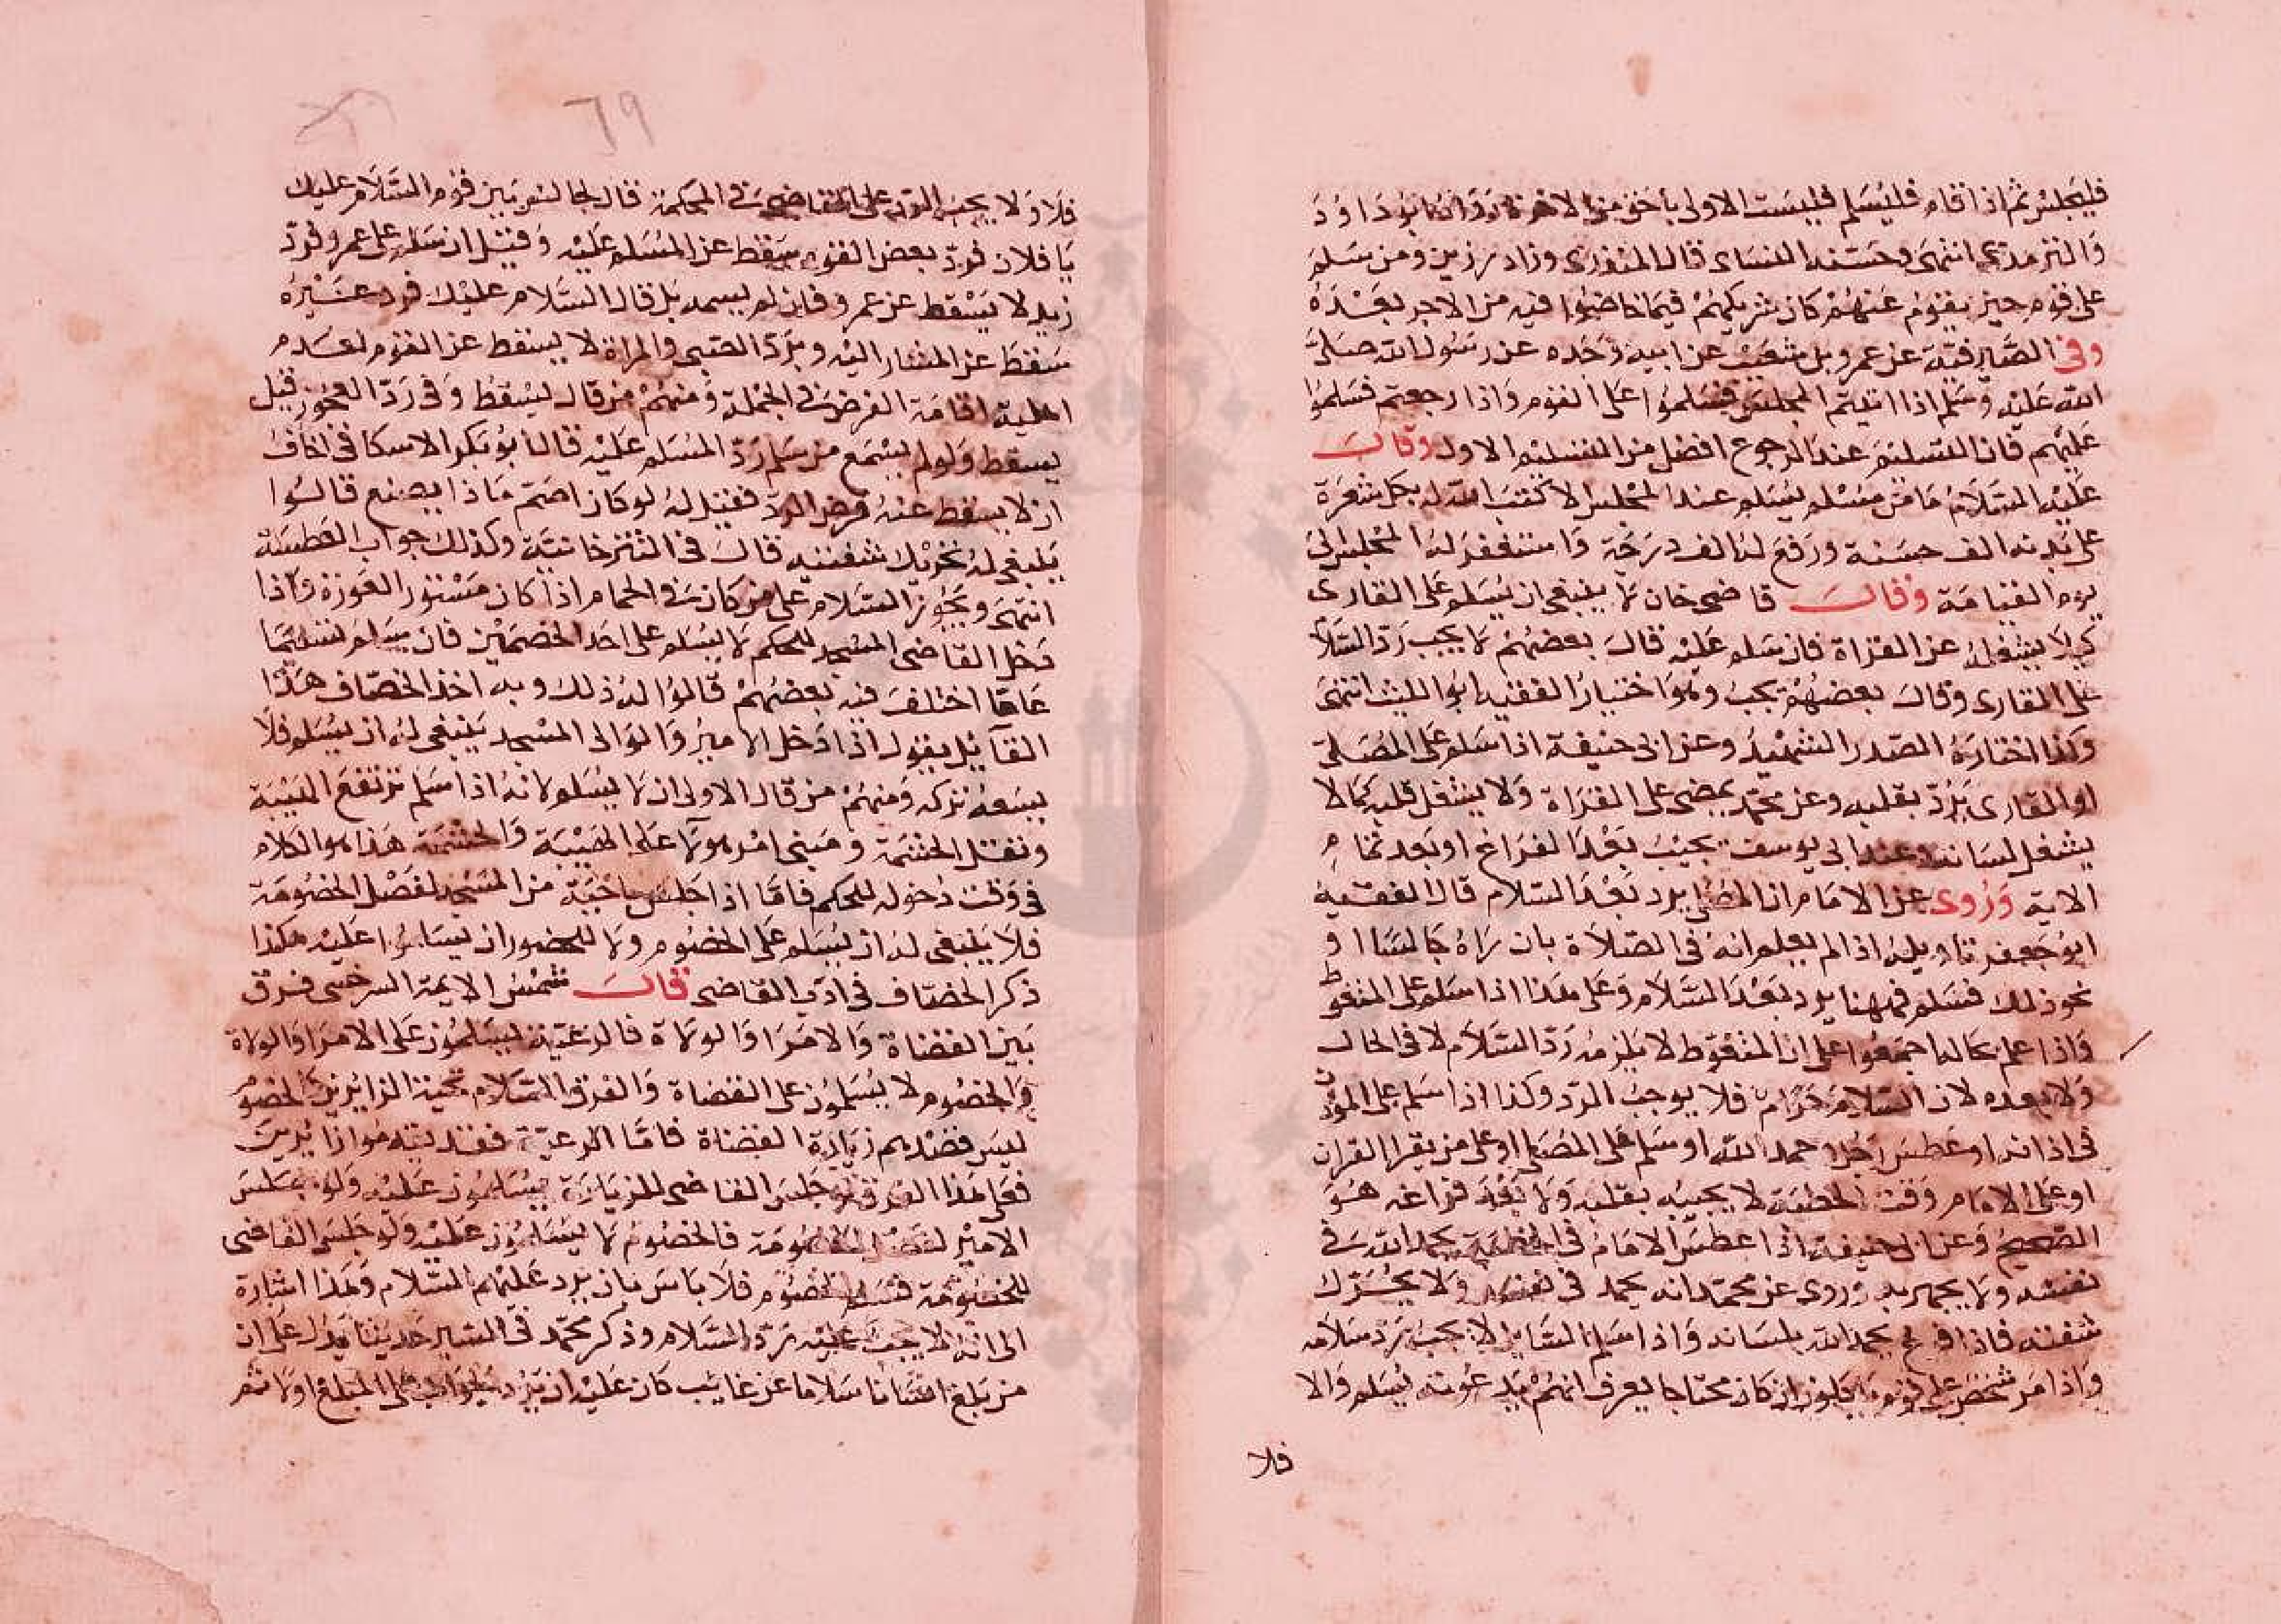 فليجلس ثم اذا قام فليسلم فليست الاولى باحق من الاخرة رواه ابوداود
والترمذي انتهى وحسنه النساى قال المنذرى وزاد رزين ومن سلم
على قوم حين يقوم عنهم كان شريكهم فيما خاضوا فيه من الاجر بعده
وفى الصيرفية عن عمرو بن شعيب عن ابيه وجده عن رسول الله صلى
الله عليه وسلم اذا اتيتم المجلس فسلموا على القوم واذا رجعتم فسلموا
عليهم فان التسليم عند الرجوع افضل من التسليم الاول وقال
عليه السلام ما من مسلم يسلم عند المجلس الا كتب الله له بكل شعرة
على بدنه الف حسنة ورفع له الف درجة واستغفر له المجلس الى
يوم القيامة وقال قاضى خان لا ينبغى ان يسلم على القارى
كيلا يشغله عن القراة فان سلم عليه قال بعضهم لا يجب رد السلام
على القارى وقال بعضهم يجب وهو اختيار الفقيه ابو الليث انتهى
وكذا اختاره الصدر الشهيد وعن ابى حنيفة اذا سلم على المصلى
او القارى يرد بقلبه وعن محمد يمضى على القراة ولا يشغل قلبه كما لا
يشغل لسانه وعند ابى يوسف يجيب بعد الفراغ او بعد تمام
الاية وروى عن الامام ان المصلى يرد بعد السلام قال الفقيه
ابو جعفر تاويله اذا لم يعلم انه فى الصلاة بان راه جالسا او
نحو ذلك فسلم فههنا يرد بعد السلام وعلى هذا اذا سلم على المتغوط
واذا علم بحاله اجمعوا على ان المتغوط لا يلزمه رد السلام لا فى الحال
ولا بعده لان السلام حرام فلا يوجب الرد وكذا اذا سلم على الموذن
فى اذانه او عطس رجل وحمد الله او سلم على المصلى او على من يقرا القران
او على الامام وقت الخطبة لا يجيبه بقلبه ولا بعد فراغه هو
الصحيح وعن ابى حنيفة اذا عطس الامام فى الخطبة يحمد الله فى
نفسه ولا يجهر به وروى عن محمد انه يحمد فى نفسه ولا يحرك
شفته فاذا فرغ يحمد الله بلسانه واذا سلم السايل لا يجب رد سلامه
واذا مر شخص على قوم ياكلون ان كان محتاجا يعرف انهم يدعونه يسلم والا
فلا
٦٩
فلا ولا يجب الرد على القاضى فى المحكمة قال لجالس بين قوم السلام عليك
يا فلان فرد بعض القوم سقط عن المسلم عليه وقيل ان سلم على عمرو فرد
زيد لا يسقط عن عمرو فان لم يسمه بل قال السلام عليك فرد عشيره
سقط عن المشار اليه وبرد الصبى والمراة لا يسقط عن القوم لعدم
اهلية اقامة الفرض فى الجملة ومنهم من قال يسقط وفى رد العجوز قيل
يسقط ولو لم يسمع من سلم رد المسلم عليه قال ابو بكر الاسكافى اخاف
ان لا يسقط عنه فرض الرد فقيل له لو كان اصم ماذا يصنع قالوا
ينبغى له تحريك شفتيه قال فى التترخانية وكذلك جواب العطسة
انتهى ويجوز السلام على من كان فى الحمام اذا كان مستور العورة واذا
دخل القاضى المسجد للحكم لا يسلم على احد الخصمين فان سلم تسليما
عاما اختلف فيه بعضهم قالوا له ذلك وبه اخذ الخصاف هذا
القايل يقول اذا دخل الامير والوالى المسجد ينبغى له ان يسلم فلا
يسعه تركه ومنهم من قال الاولى ان لا يسلم لانه اذا سلم ترتفع الهيبة
وتقل الحشمة ومبنى امر هولا على الهيبة والحشمة هذا هو الكلام
فى وقت دخوله للحكم فاما اذا جلس ناحية من المسجد لفصل الخصومة
فلا ينبغى له ان يسلم على الخصوم ولا للحضور ان يسلموا عليه هكذا
ذكر الخصاف فى ادب القاضى قال شمس الايمة السرخسى فرق
بين القضاة والامرا والولاة فالرعية يسلمون على الامرا والولاة
والخصوم لا يسلمون على القضاة والفرق السلام تحية الزايرين والخصوم
ليس قصدهم زيارة القضاة فاما الرعية
فعلى هذا الفرق لو جلس القاضى للزيارة يسلمون عليه ولو جلس
الامير لفصل الخصومة فالخصوم لا يسلمون عليه ولو جلس القاضى
للخصومة فسلم الخصوم فلا باس بان يرد عليهم السلام وهذا اشارة
الى انه لا يجب عليه رد السلام وذكر محمد فى السير حديثا يدل على ان
من بلغ انسانا سلاما عن غايب كان عليه ان يرد الجواب على المبلغ اولا ثم